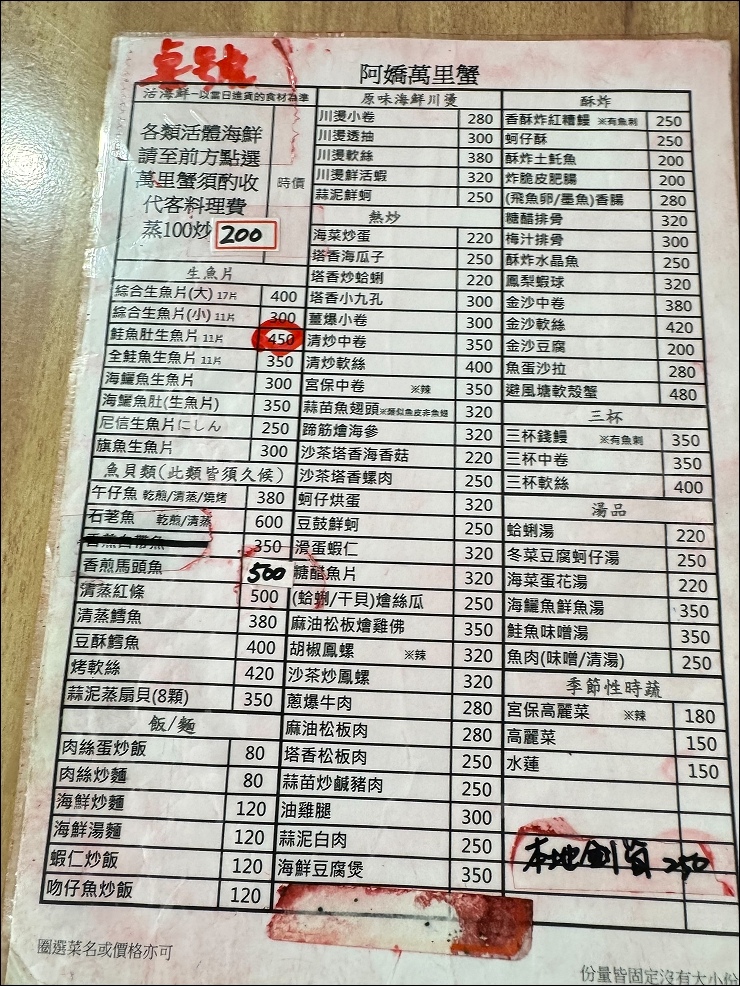 桌號
阿嬌萬里蟹
活海鮮-以當日進貨的食材為準
各類活體海鮮
請至前方點選
萬里蟹須酌收
代客料理費
蒸100炒200
時價
生魚片
綜合生魚片(大) 17片 400
綜合生魚片(小) 11片 300
鮭魚肚生魚片 11片 450
全鮭魚生魚片 11片 350
海鱺魚生魚片 300
海鱺魚肚(生魚片) 350
尼信生魚片にしん 250
旗魚生魚片 300
魚貝類(此類皆須久候)
午仔魚 乾煎/清蒸/燒烤 380
石荖魚 乾煎/清蒸 600
香煎白帶魚 350
香煎馬頭魚 500
清蒸紅條 500
清蒸鱈魚 380
豆酥鱈魚 400
烤軟絲 420
蒜泥蒸扇貝(8顆) 350
飯/麵
肉絲蛋炒飯 80
肉絲炒麵 80
海鮮炒麵 120
海鮮湯麵 120
蝦仁炒飯 120
吻仔魚炒飯 120
原味海鮮川燙
川燙小卷 280
川燙透抽 300
川燙軟絲 380
川燙鮮活蝦 320
蒜泥鮮蚵 250
熱炒
海菜炒蛋 220
塔香海瓜子 250
塔香炒蛤蜊 220
塔香小九孔 300
薑爆小卷 300
清炒中卷 350
清炒軟絲 400
宮保中卷 ※辣 350
蒜苗魚翅頭※類似魚皮非魚翅 320
蹄筋燴海參 320
沙茶塔香海香菇 220
沙茶塔香螺肉 250
蚵仔烘蛋 320
豆鼓鮮蚵 250
滑蛋蝦仁 320
糖醋魚片 320
(蛤蜊/干貝)燴絲瓜 250
麻油松板燴雞佛 350
胡椒鳳螺 ※辣 320
沙茶炒鳳螺 320
蔥爆牛肉 280
麻油松板肉 280
塔香松板肉 250
蒜苗炒鹹豬肉 250
油雞腿 300
蒜泥白肉 250
海鮮豆腐煲 350
酥炸
香酥炸紅糟鰻 ※有魚刺 250
蚵仔酥 250
酥炸土魠魚 200
炸脆皮肥腸 200
(飛魚卵/墨魚)香腸 280
糖醋排骨 320
梅汁排骨 300
酥炸水晶魚 250
鳳梨蝦球 320
金沙中卷 380
金沙軟絲 420
金沙豆腐 200
魚蛋沙拉 280
避風塘軟殼蟹 480
三杯
三杯錢鰻 ※有魚刺 350
三杯中卷 350
三杯軟絲 400
湯品
蛤蜊湯 220
冬菜豆腐蚵仔湯 250
海菜蛋花湯 220
海鱺魚鮮魚湯 350
鮭魚味噌湯 350
魚肉(味噌/清湯) 250
季節性時蔬
宮保高麗菜 ※辣 180
高麗菜 150
水蓮 150
本地劍筍 250
圈選菜名或價格亦可
份量皆固定沒有大小份